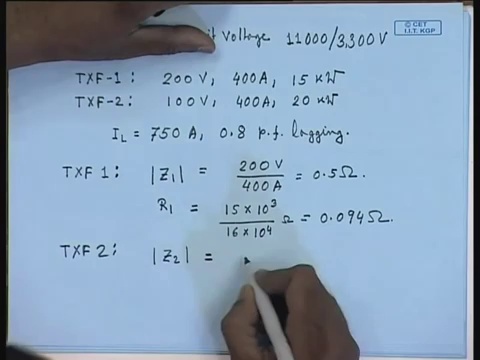 Voltage 11000/3,300V
© CET
I.I.T. KGP
TXF-1: 200 V, 400A, 15 kW
TXF-2: 100 V, 400A, 20 kW
I_L = 750 A, 0.8 p.f. lagging.
TXF 1: |Z₁| = 200 V / 400 A = 0.5Ω.
R₁ = 15 × 10³ / 16 × 10⁴ Ω = 0.094Ω.
TXF 2: |Z₂| =